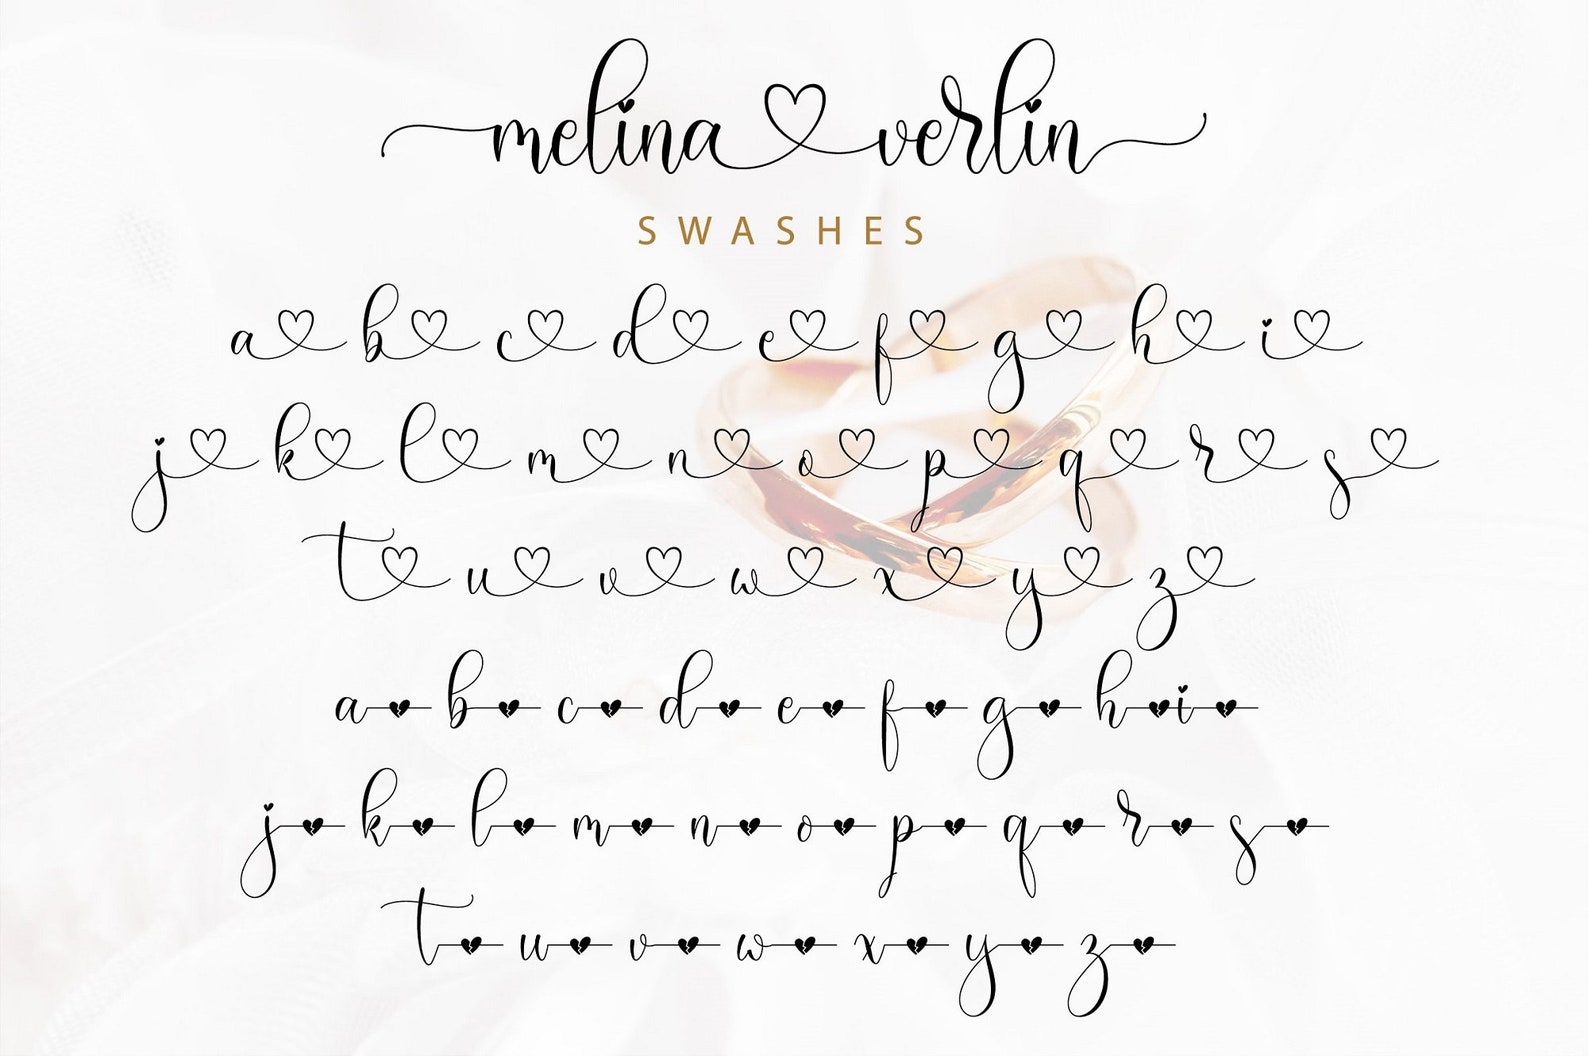 melina verlin
SWASHES
a b c d e f g h i
j k l m n o p q r s
t u v w x y z
a b c d e f g h i
j k l m n o p q r s
t u v w x y z